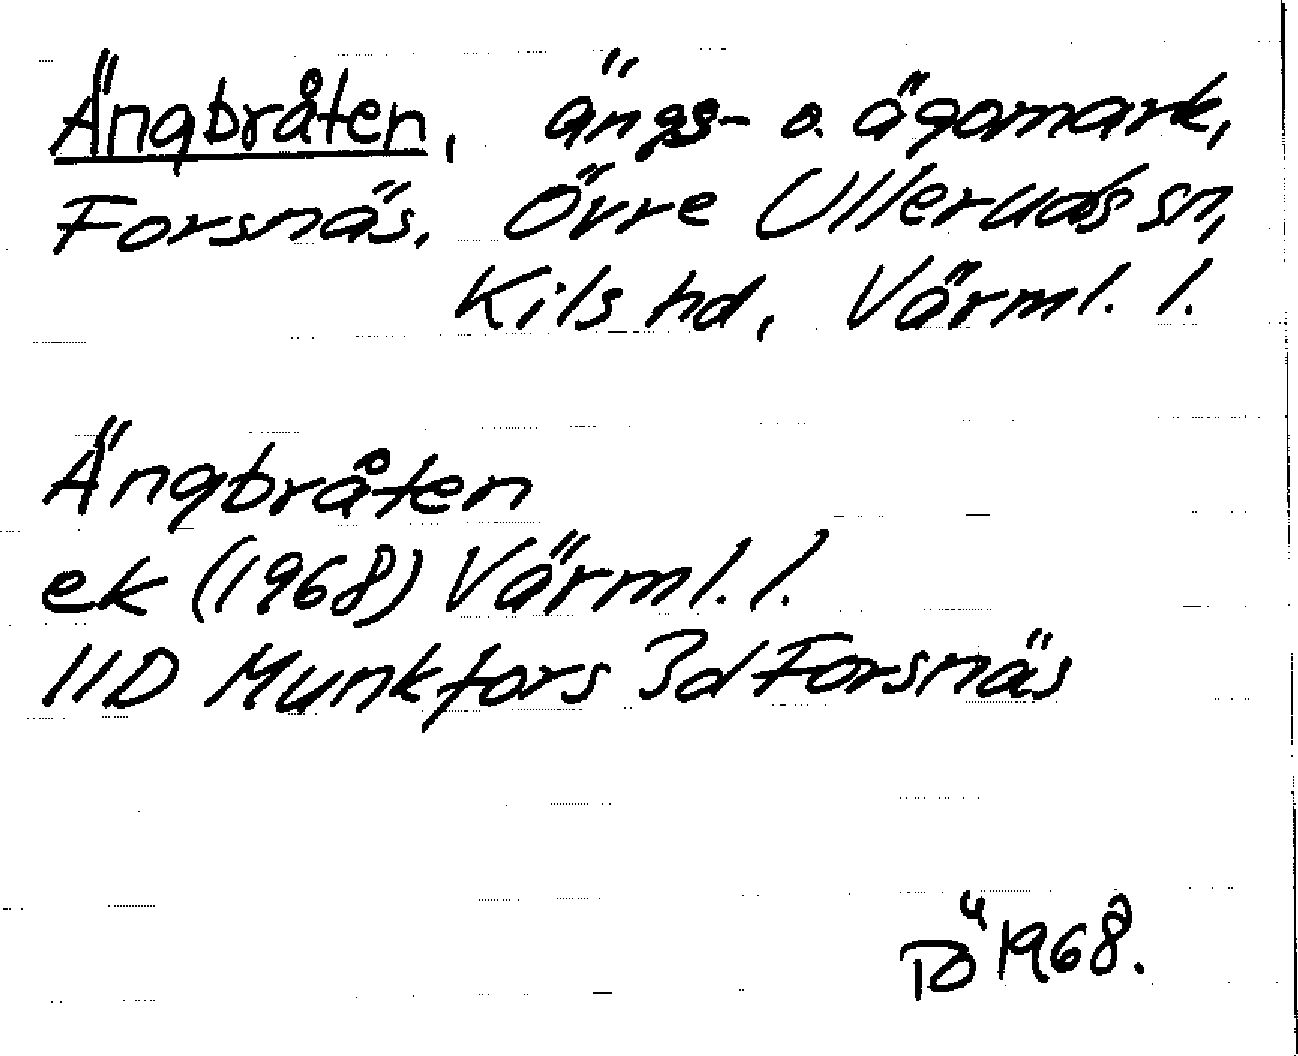 Ängbråten, ängs- o. ägomark,
Forsnäs. Övre Ulleruds sn,
Kils hd, Värml. l.
Ängbråten
ek (1968) Värml. l.
11D Munkfors 3d Forsnäs
1968.